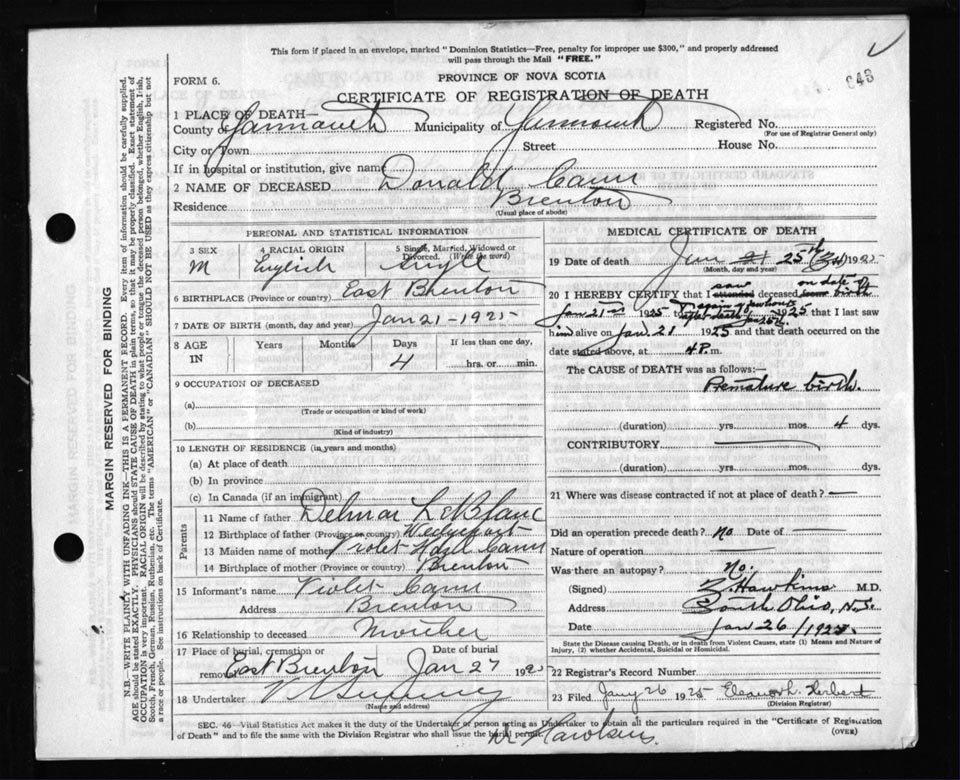 This form if placed in an envelope, marked "Dominion Statistics—Free, penalty for improper use $300," and properly addressed
will pass through the Mail "FREE."
FORM 6.
PROVINCE OF NOVA SCOTIA
CERTIFICATE OF REGISTRATION OF DEATH
1 PLACE OF DEATH—
County of Yarmouth Municipality of Yarmouth Registered No.
(For use of Registrar General only)
City or Town Street House No.
If in hospital or institution, give name
2 NAME OF DECEASED Donald Cann
Residence Brenton
(Usual place of abode)
PERSONAL AND STATISTICAL INFORMATION
3 SEX 4 RACIAL ORIGIN 5 Single, Married, Widowed or Divorced. (Write the word)
M English Single
6 BIRTHPLACE (Province or country) East Brenton
7 DATE OF BIRTH (month, day and year) Jan 21-1925
8 AGE IN Years Months Days If less than one day,
4 hrs. or min.
9 OCCUPATION OF DECEASED
(a)
(Trade or occupation or kind of work)
(b)
(Kind of industry)
10 LENGTH OF RESIDENCE (in years and months)
(a) At place of death
(b) In province
(c) In Canada (if an immigrant)
Parents
11 Name of father Delmar LeBlanc
12 Birthplace of father (Province or country) Wedgeport
13 Maiden name of mother Violet Hazel Cann
14 Birthplace of mother (Province or country) Brenton
15 Informant's name Violet Cann
Address Brenton
16 Relationship to deceased Mother
17 Place of burial, cremation or removal Date of burial
East Brenton Jan 27 192
18 Undertaker
(Name and address)
MEDICAL CERTIFICATE OF DEATH
19 Date of death 25th 1925
(Month, day and year)
20 I HEREBY CERTIFY that I saw attended deceased from on date of birth
Jan 21st 1925 to 1925 that I last saw
him alive on Jan 21 1925 and that death occurred on the
date stated above, at 4 P. m.
The CAUSE OF DEATH was as follows:—
Premature birth.
(duration) yrs. mos. 4 dys.
CONTRIBUTORY
(duration) yrs. mos. dys.
21 Where was disease contracted if not at place of death? —
Did an operation precede death? No Date of —
Nature of operation —
Was there an autopsy? No.
(Signed) Z. Hawkins M.D.
Address South Ohio, N.S.
Date Jan 26/1925.
State the Disease causing Death, or in death from Violent Causes, state (1) Means and Nature of
Injury, (2) whether Accidental, Suicidal or Homicidal.
22 Registrar's Record Number
23 Filed Jany 26 1925 Herbert
(Division Registrar)
SEC. 46—Vital Statistics Act makes it the duty of the Undertaker or person acting as Undertaker to obtain all the particulars required in the "Certificate of Registration
of Death" and to file the same with the Division Registrar who shall issue the burial permit.
(OVER)
MARGIN RESERVED FOR BINDING
N.B.—WRITE PLAINLY WITH UNFADING INK—THIS IS A PERMANENT RECORD. Every item of information should be carefully supplied.
AGE should be stated EXACTLY. PHYSICIANS should STATE CAUSE OF DEATH in plain terms, so that it may be properly classified. Exact statement of
OCCUPATION is very important. RACIAL ORIGIN will be described by stating to what people or tongue the deceased person belonged, whether English, Irish,
Scotch, French, German, Russian, Ruthenian, etc. The terms "AMERICAN" or "CANADIAN" SHOULD NOT BE USED as they express citizenship but not
a race or people. See instructions on back of Certificate.